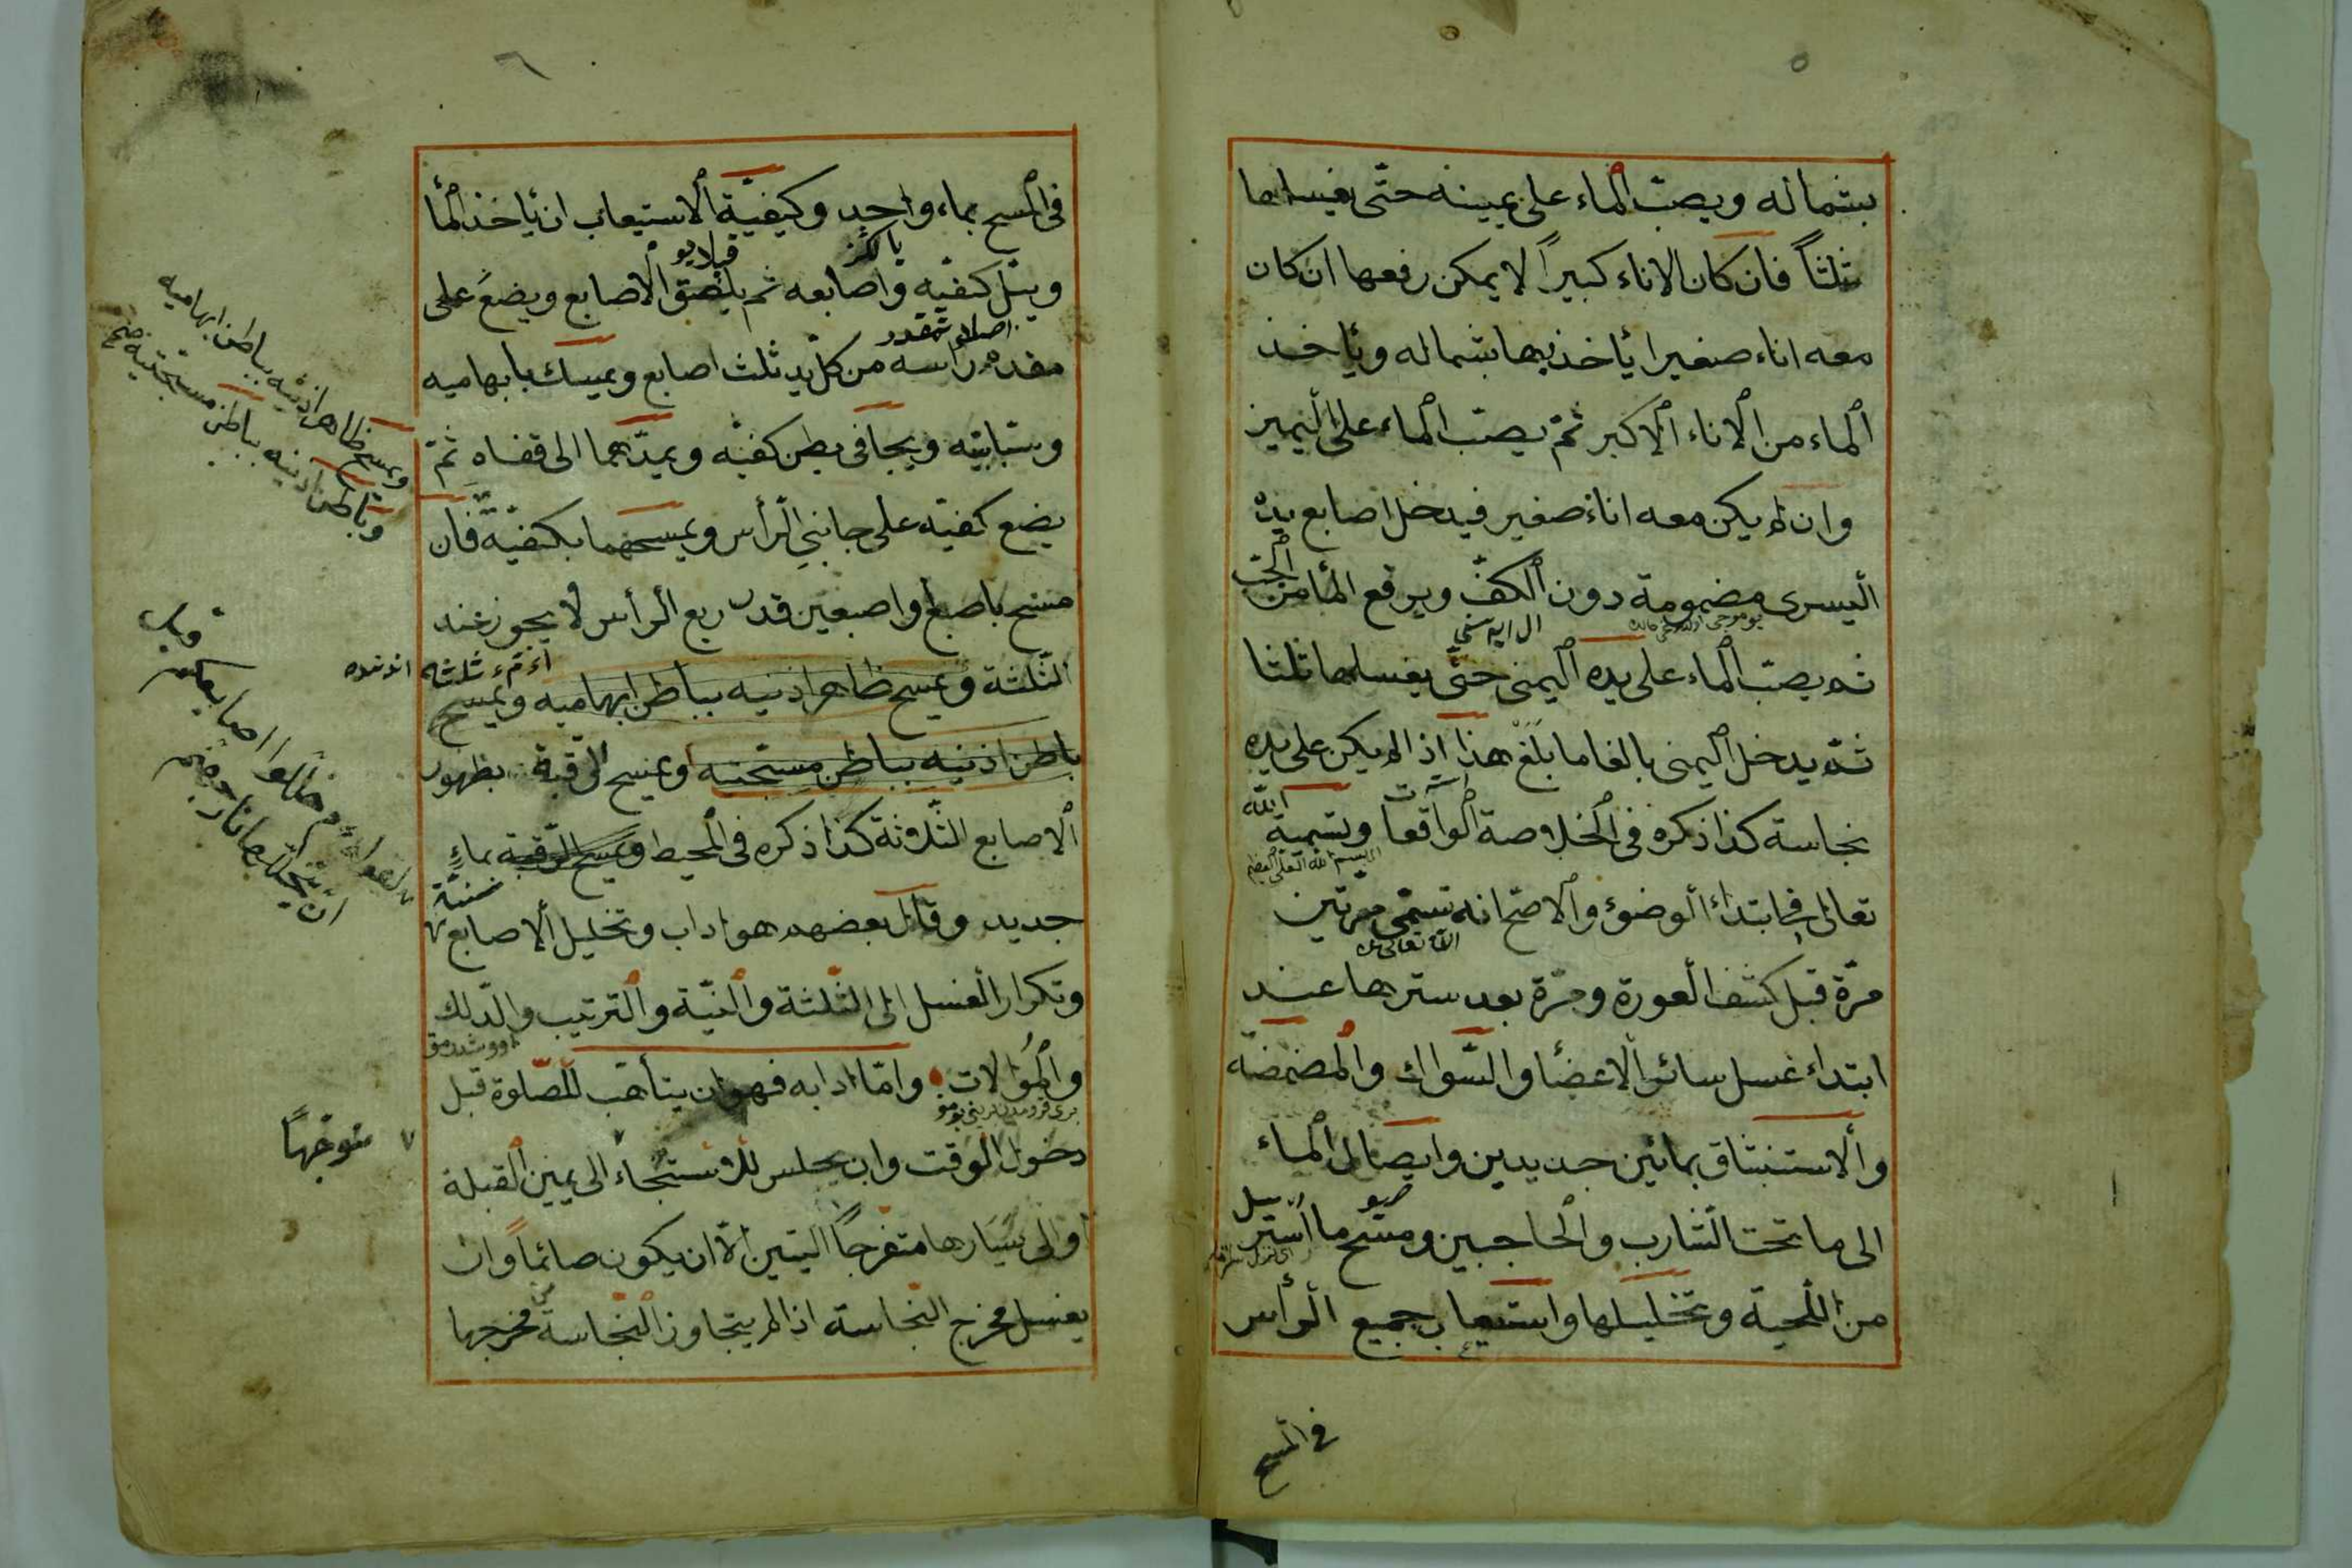 ٥
بشماله ويصبّ الماء على يمينه حتّى يغسلها
ثلثاً فان كان الاناء كبيراً لا يمكن رفعها ان كان
معه اناء صغيرا يأخذ بها بشماله ويأخذ
الماء من الاناء الاكبر ثمّ يصبّ الماء على اليمين
وان لم يكن معه اناء صغير فيدخل اصابع يده
اليسرى مضمومة دون الكفّ ويرفع الماء من الحبّ
ثم يصبّ الماء على يده اليمنى حتّى يغسلها ثلثا
ثم يدخل اليمنى بالغا ما بلغ هذا اذا لم يكن على يده
نجاسة كذا ذكره فى الخلاصة الواقعات وتسمية الله
تعالى فى ابتداء الوضوء والاصحّ انه يسمّى مرّتين
مرّة قبل كشف العورة ومرّة بعد سترها عند
ابتداء غسل سائر الاعضاء والسّواك والمضمضة
والاستنشاق بمائين جديدين وايصال الماء
الى ما تحت الشّارب والحاجبين ومسح ما استرسل
من اللّحية وتخليلها واستيعاب جميع الرأس
فى المسح
٦
فى المسح بماء واحد وكيفيّة الاستيعاب ان يأخذ الماء
ويبلّ كفيّه واصابعه ثم يلصق الاصابع ويضع على
مقدم رأسه من كلّ يد ثلث اصابع ويمسك بابهاميه
وسبّابتيه ويجافى بطن كفيّه ويمدّهما الى قفاه ثمّ
يضع كفيّه على جانبى الرّأس ويمسحهما بكفيّه فان
مسح باصبع واصبعين قدر ربع الرأس لا يجوز عند
الثّلثة ويمسح ظاهر اذنيه بباطن ابهاميه ويمسح
باطن اذنيه بباطن مسبّحتيه ويمسح الرّقبة بظهور
الاصابع الثّلاثة كذا ذكره فى المحيط ويمسح الرّقبة بماءٍ
جديد وقال بعضهم هو اداب وتخليل الاصابع سنّة
وتكرار الغسل الى الثّلثة والنيّة والترتيب والدّلك
والموالات وامّا ادابه فهو ان يتأهّب للصّلوة قبل
دخول الوقت وان يجلس للاستنجاء الى يمين القبلة
او الى يسارها متفرجاً اليتين الّا ان يكون صائماً وان
يغسل مخرج النّجاسة اذا لم يتجاوز النّجاسة من مخرجها
ويمسح ظاهر اذنيه بباطن ابهاميه
وباطن اذنيه بباطن مسبّحتيه
متوجّهاً